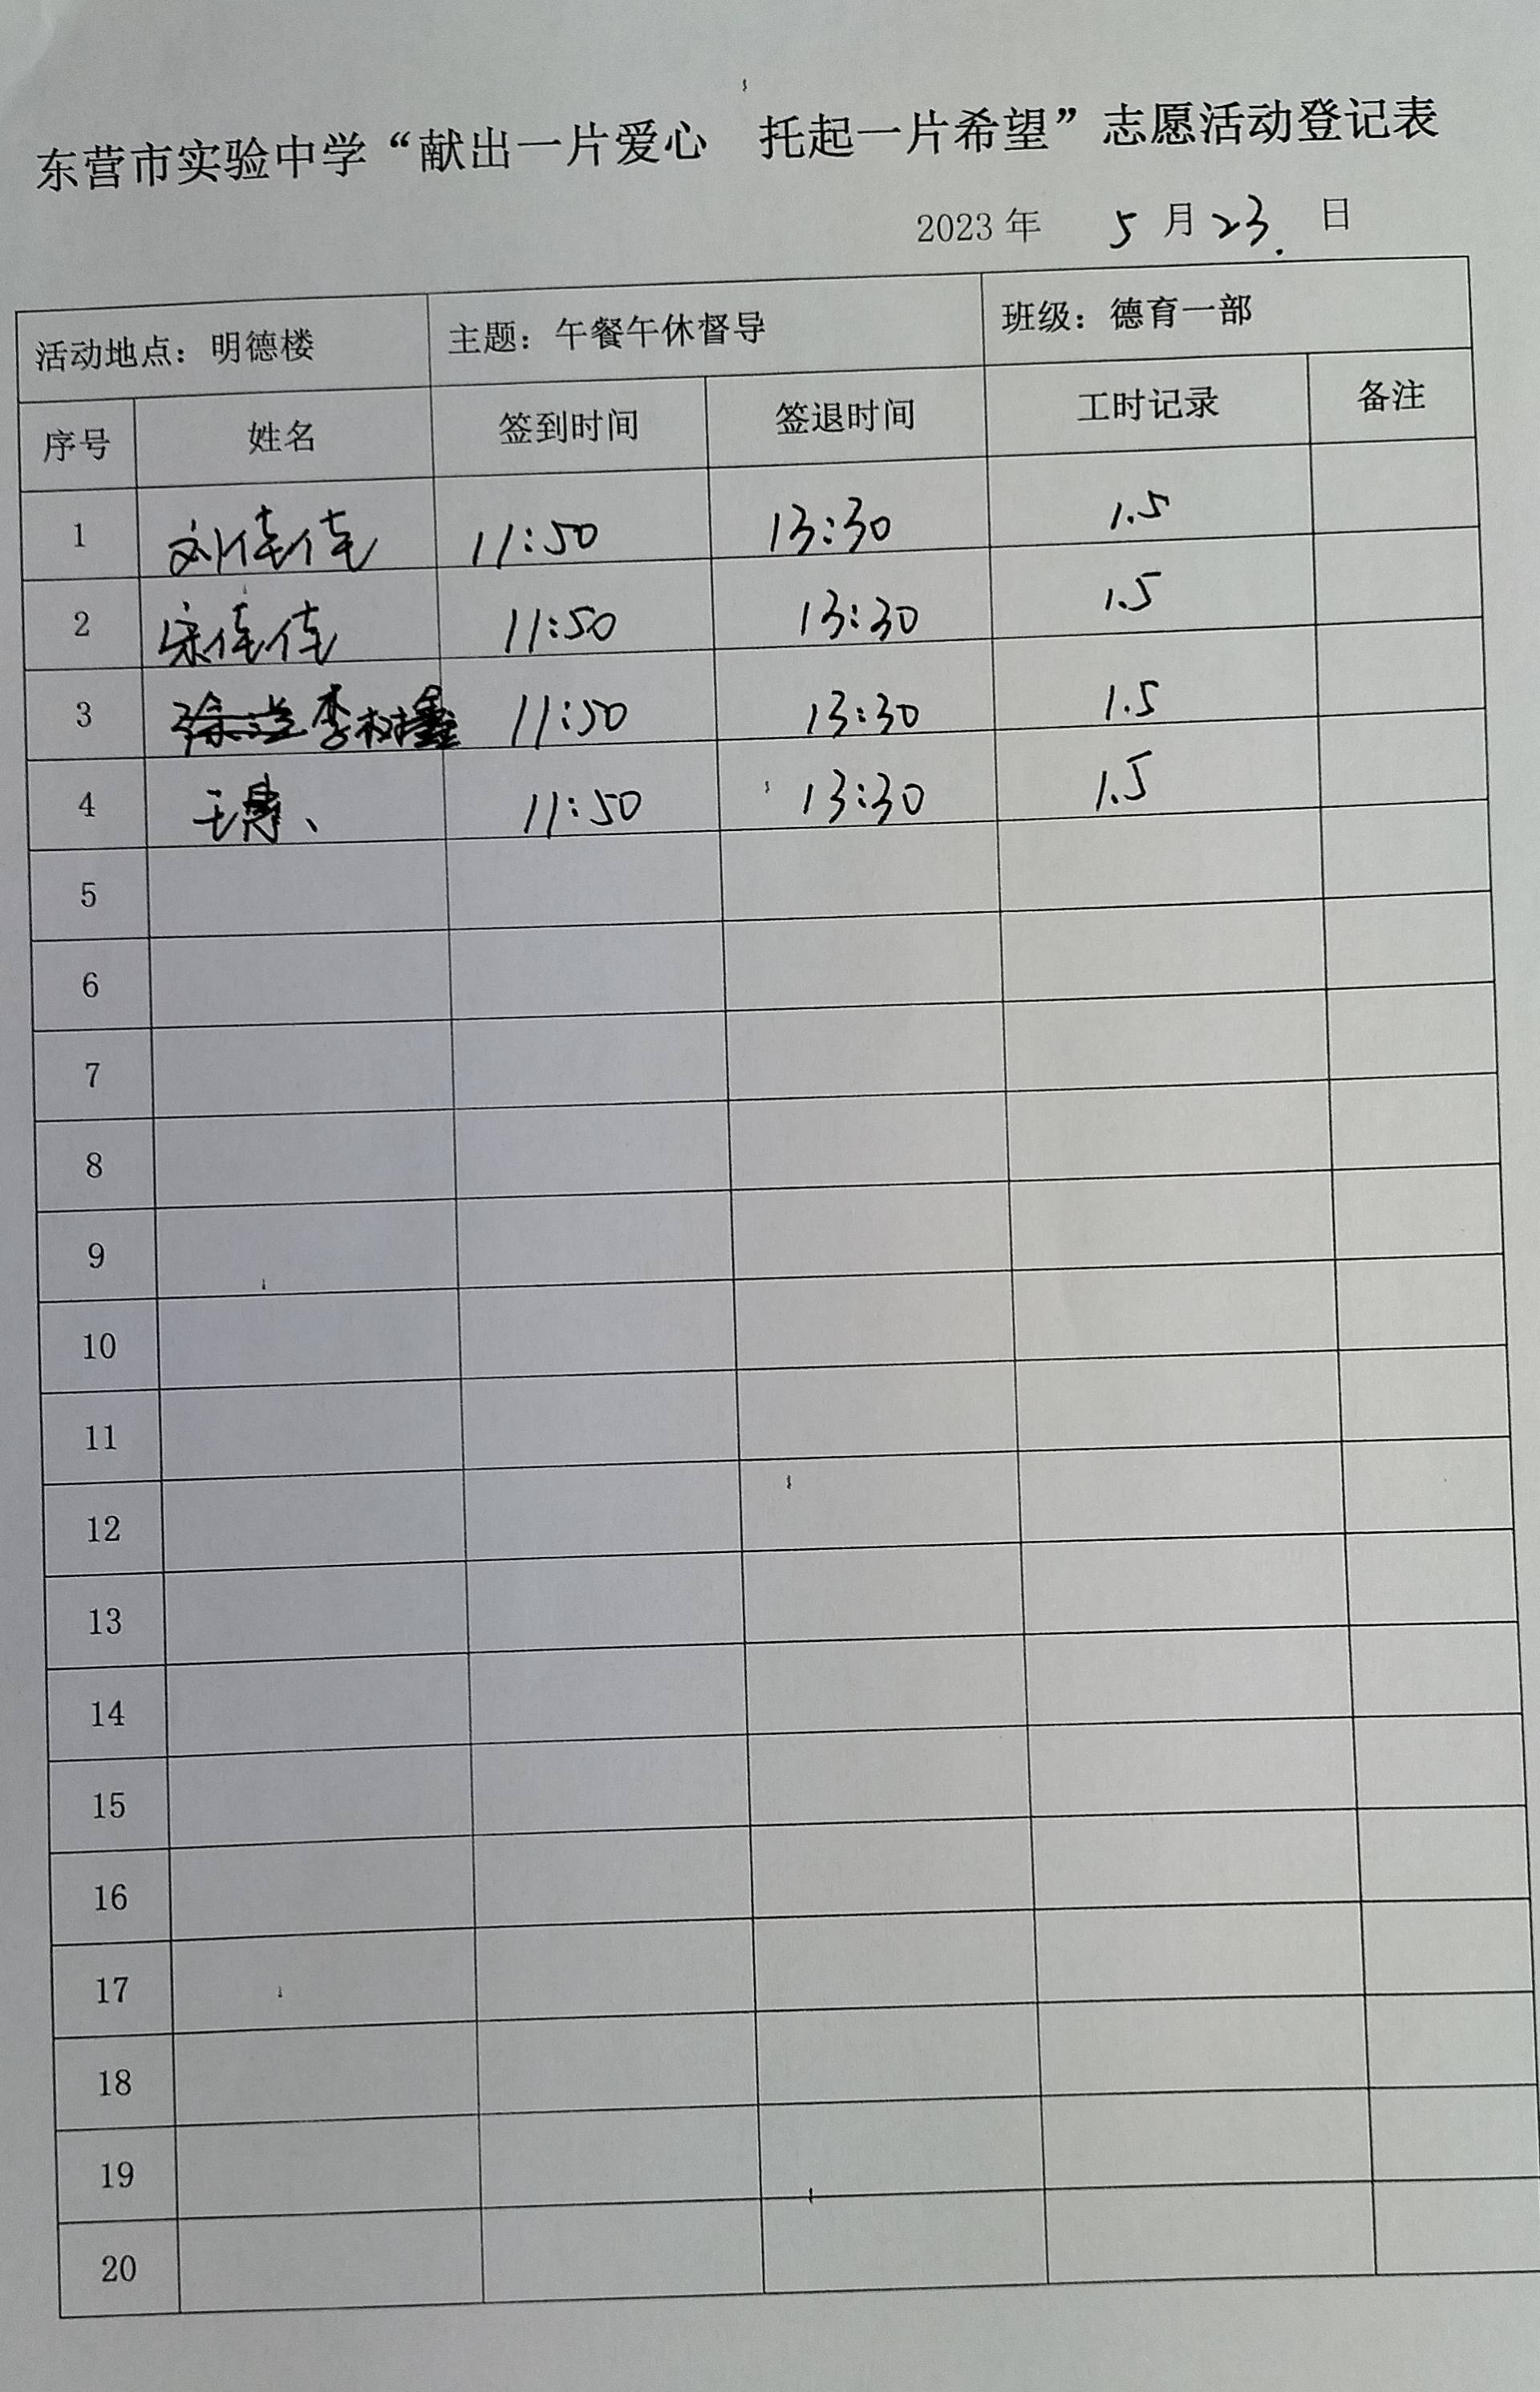 东营市实验中学“献出一片爱心 托起一片希望”志愿活动登记表
2023年 5月23. 日
活动地点：明德楼 主题：午餐午休督导 班级：德育一部
序号 姓名 签到时间 签退时间 工时记录 备注
1 刘佳佳 11:50 13:30 1.5
2 宋佳佳 11:50 13:30 1.5
3 李树鑫 11:50 13:30 1.5
4 王 11:50 13:30 1.5
5
6
7
8
9
10
11
12
13
14
15
16
17
18
19
20